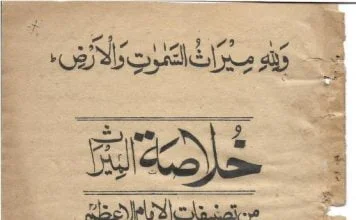 وَلِلّٰهِ مِيْرَاثُ السَّمٰوٰتِ وَالْاَرْضِ ط
خُلَاصَةُ الْمِيْرَاث
من تصنيفات الامام الاعظم